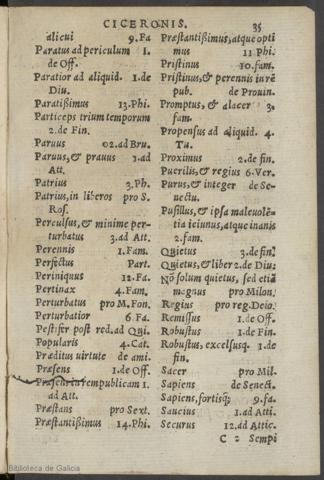 CICERONIS. 35
alicui 9.Fa
Paratus ad periculum 1.
de Off.
Paratior ad aliquid. 1.de
Diu.
Paratißimus 13.Phi.
Particeps trium temporum
2.de Fin.
Paruus 02.ad Bru.
Paruus, & prauus 1.ad
Att.
Patrius 3.Ph.
Patrius, in liberos pro S.
Ros.
Perculsus, & minime per-
turbatus 3.ad Att.
Perennis 1.Fam.
Perfectus Part.
Periniquus 12.Fa.
Pertinax 4.Fam.
Perturbatus pro M.Fon.
Perturbatior 6.Fa.
Pestifer post red. ad Qui.
Popularis 4.Cat.
Præditus uirtute de ami.
Præsens 1.de Off.
rempublicam 1.
ad Att.
Præstans pro Sext.
Præstantißimus 14.Phi.
Præstantißimus, atque opti
mus 11.Phi.
Pristinus 10.fam.
Pristinus, & perennis in rē
pub. de Prouin.
Promptus, & alacer 3.
fam.
Propensus ad aliquid. 4.
Tu.
Proximus 2.de fin.
Puerilis, & regius 6.Ver.
Purus, & integer de Se-
nectu.
Pusillus, & ipsa maleuolē-
tia ieiunus, atque inanis
2.fam.
Quietus 3.de fin.
Quietus, & liber 2.de Diu:
Nō solum quietus, sed etiā
magnus pro Milon.
Regius pro reg.Deio.
Remissus 1.de Off.
Robustus 1.de Fin.
Robustus, excelsusq. 1.de
fin.
Sacer pro Mil.
Sapiens de Senect.
Sapiens, fortisq; 9.fa.
Saucius 1.ad Atti.
Securus 12.ad Attic.
C 2 Sempi
Biblioteca de Galicia